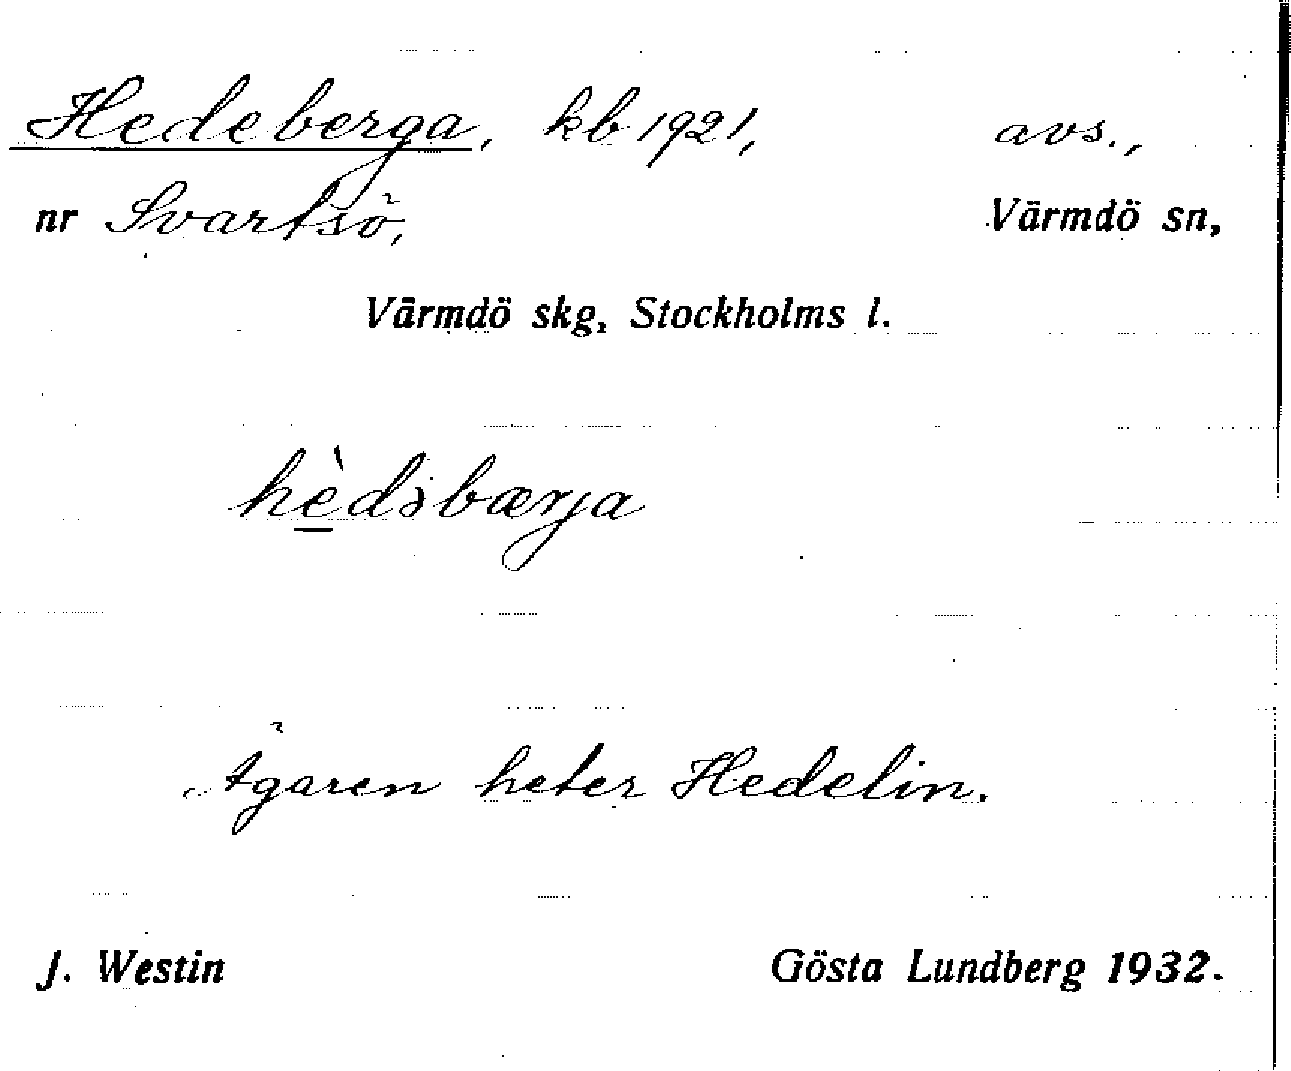 Hedeberga, kb 1921, avs.,
nr Svartsö, Värmdö sn,
Värmdö skg, Stockholms l.
hèdəbærja
Ägaren heter Hedelin.
J. Westin Gösta Lundberg 1932.